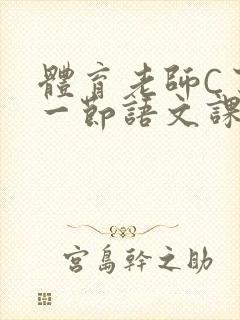 體育老師C
一節語文課
宮島幹之助